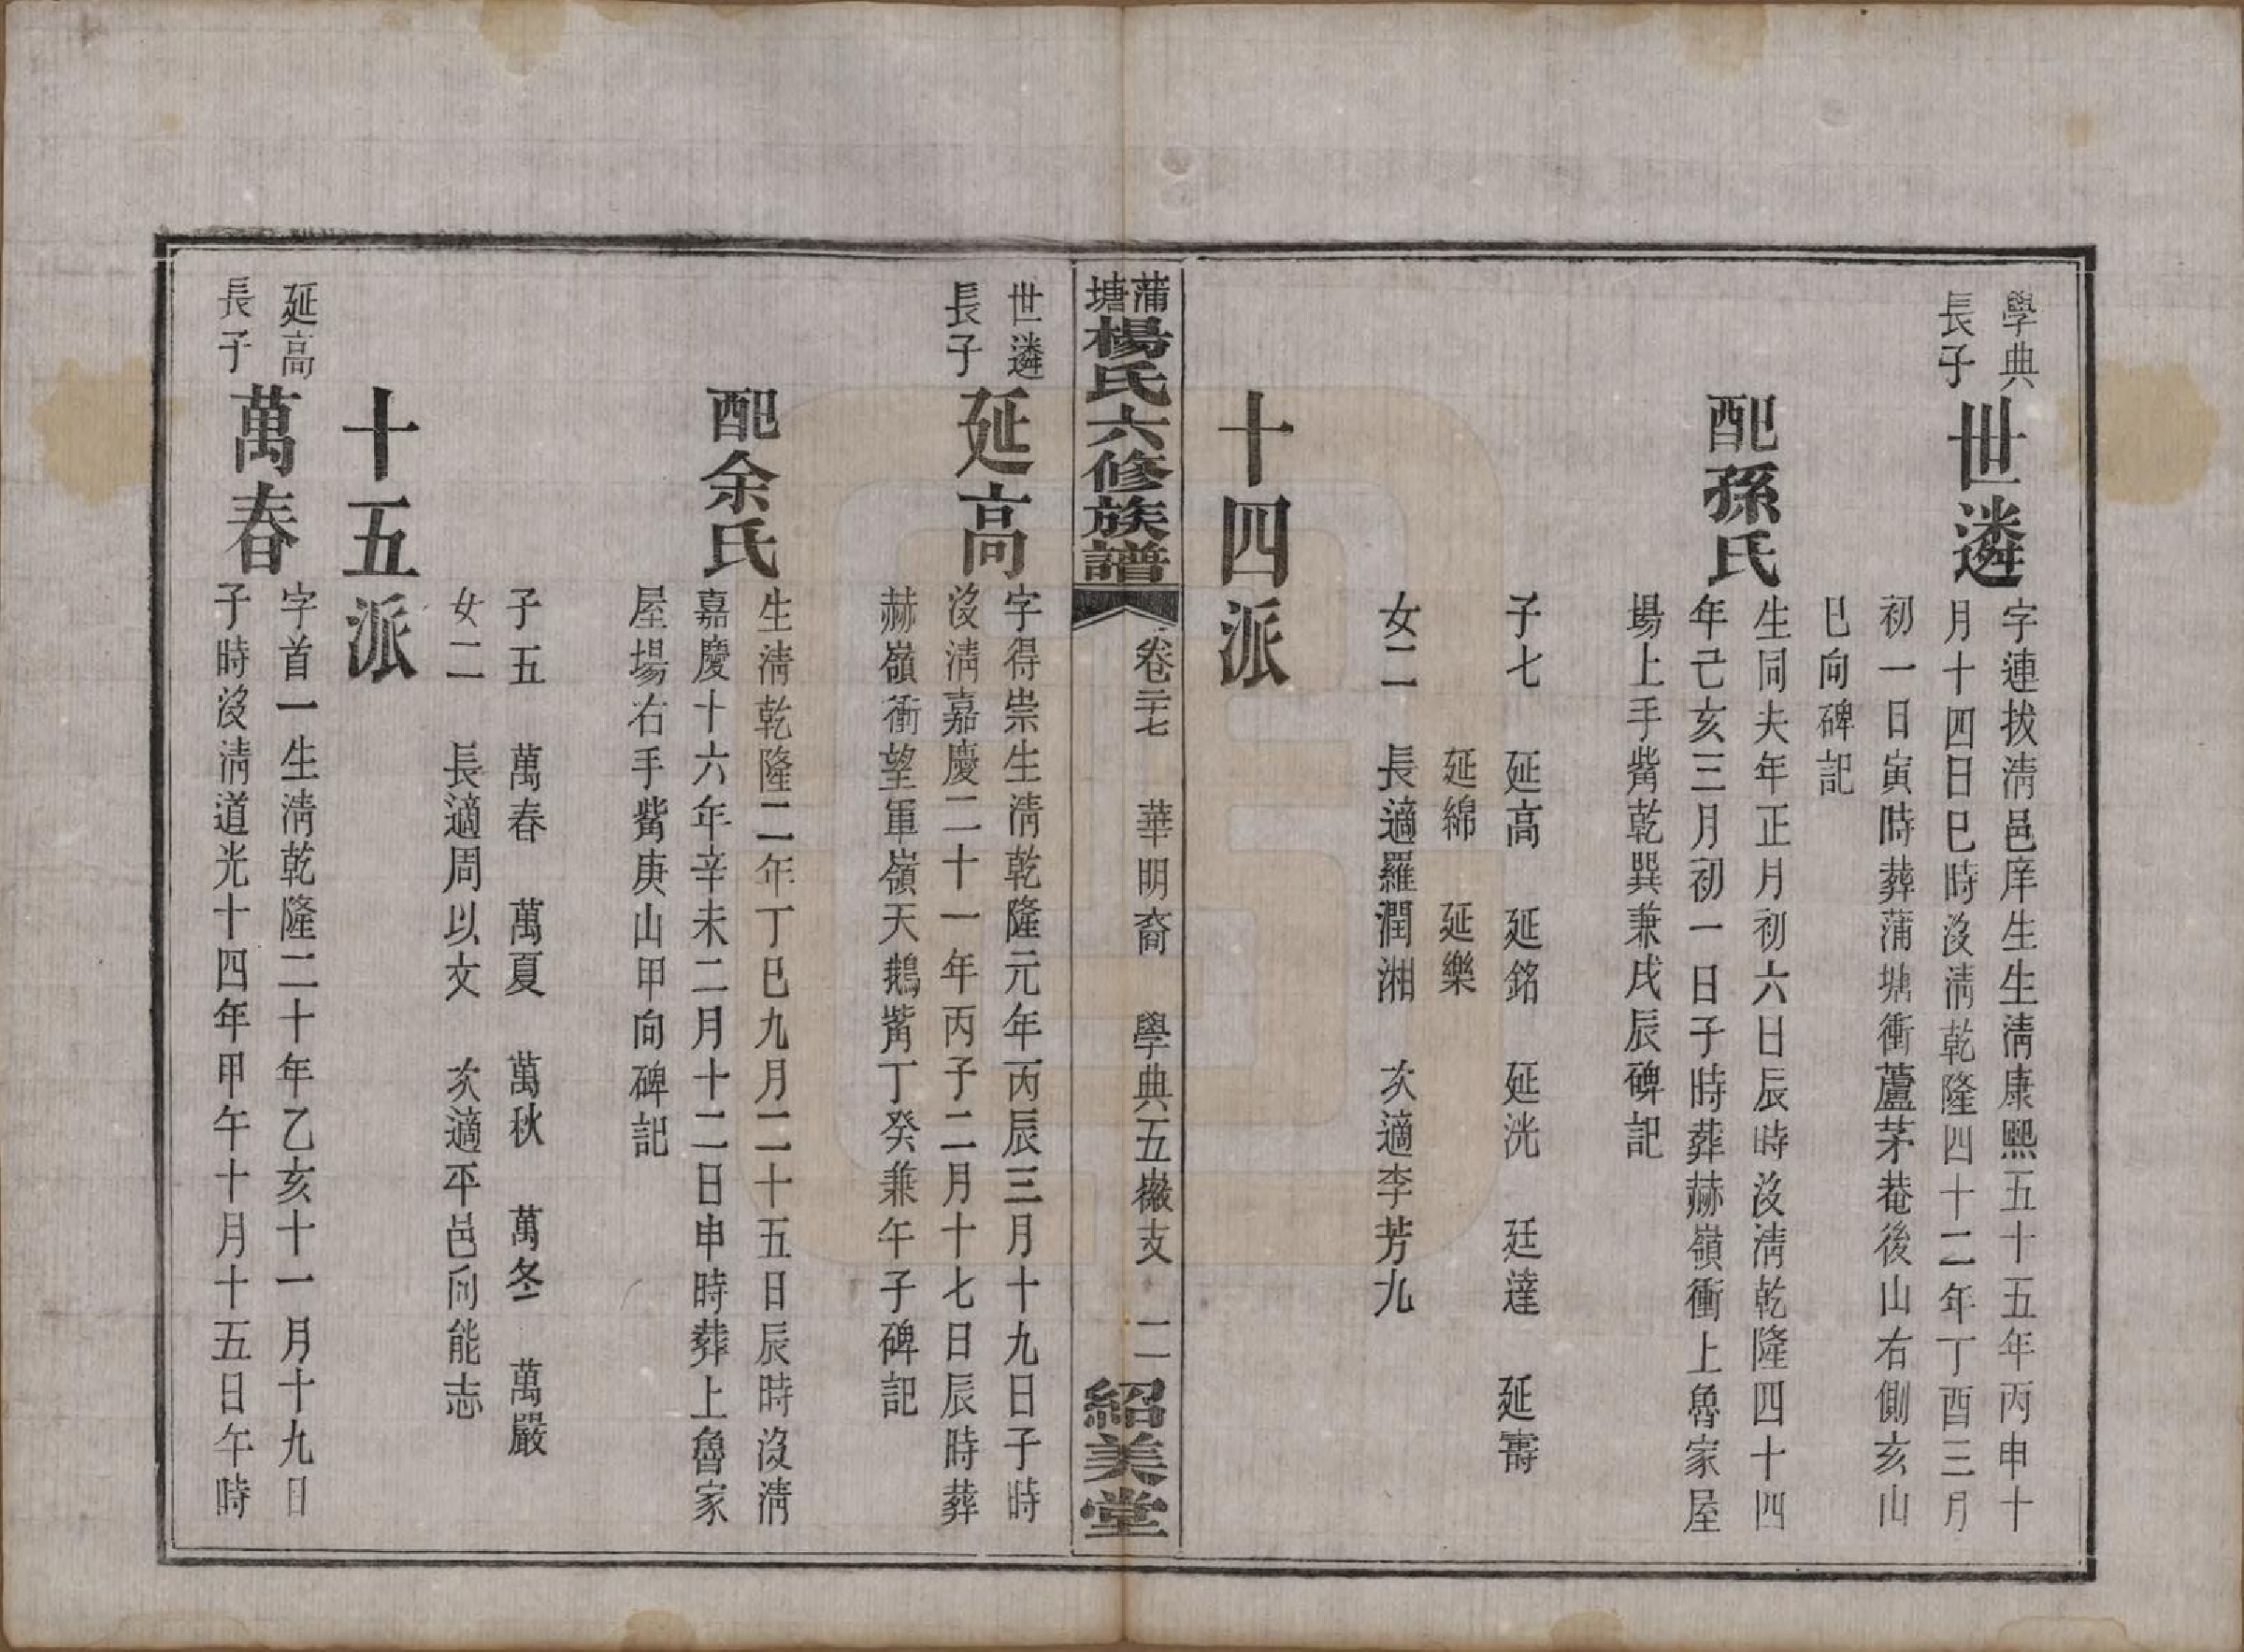 學典
長子
世遴
字連拔淸邑庠生生淸康熙五十五年丙申十
月十四日巳時沒淸乾隆四十二年丁酉三月
初一日寅時葬蒲塘衝蘆茅菴後山右側亥山
巳向碑記
配孫氏
生同夫年正月初六日辰時沒淸乾隆四十四
年己亥三月初一日子時葬赫嶺衝上魯家屋
場上手觜乾巽兼戌辰碑記
子七 延高 延銘 延洸 廷達 延壽
延綿 延樂
女二 長適羅潤湘 次適李芳九
十四派
蒲塘楊氏六修族譜
卷二十七 華明裔 學典五嶶支 二
紹美堂
世遴
長子
延高
字得崇生淸乾隆元年丙辰三月十九日子時
沒淸嘉慶二十一年丙子二月十七日辰時葬
赫嶺衝望軍嶺天鵝觜丁癸兼午子碑記
配余氏
生淸乾隆二年丁巳九月二十五日辰時沒淸
嘉慶十六年辛未二月十二日申時葬上魯家
屋場右手觜庚山甲向碑記
子五 萬春 萬夏 萬秋 萬冬 萬嚴
女二 長適周以文 次適平邑向能志
十五派
延高
長子
萬春
字首一生淸乾隆二十年乙亥十一月十九日
子時沒淸道光十四年甲午十月十五日午時